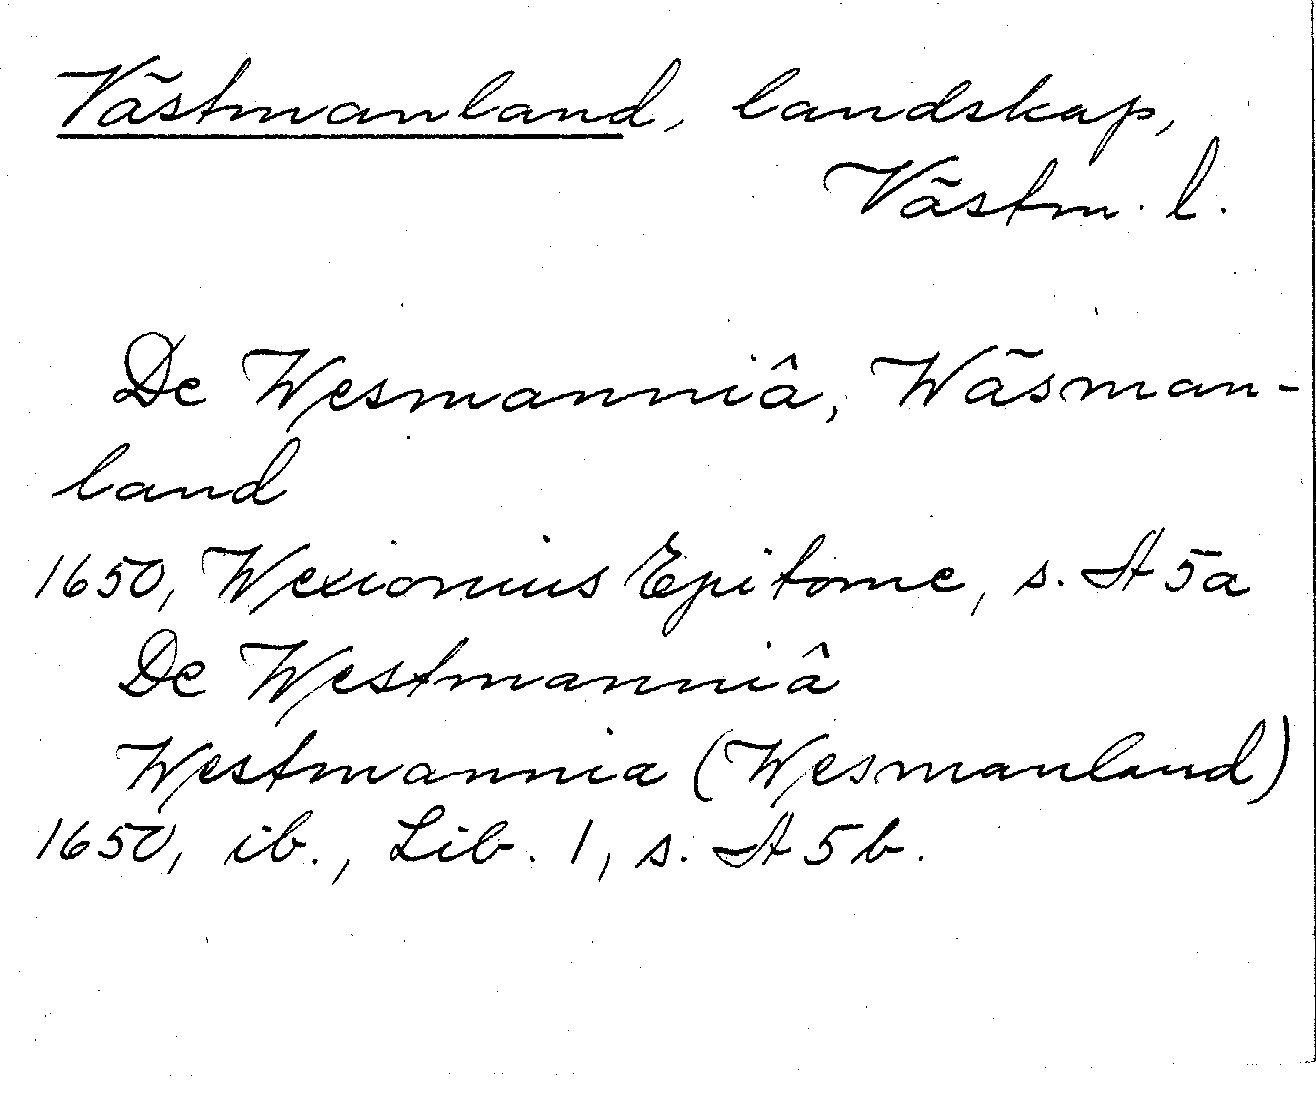 Västmanland, landskap,
Västm. l.
De Wesmanniâ, Wäsman-
land
1650, Wexionius Epitome, s. A 5a
De Westmanniâ
Westmannia (Wesmanland)
1650, ib., Lib. 1, s. A 5b.